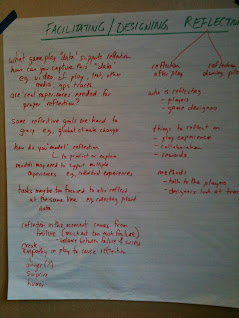 FACILITATING / DESIGNING REFLECTI
what gameplay "data" supports reflection
how can you capture this "data"
eg. video of play, text, other
media, gps traces
are real experiences needed for
proper reflection?
some reflective goals are hard to
grasp e.g. global climate change
how do you "model" reflection
to predict or explain
model may need to capture multiple
experiences e.g. individual experiences
tasks may be too focused to also reflect
at the same time eg collecting plant
data
reflection in the moment comes from
failure (much not too much failure)
balance between failure & success
empathy in play to cause reflection
anger(?)
surprise
humor
reflection
after play
reflection
during play
who is reflecting
- players
- game designers
things to reflect on
- play experience
- collaboration
- rewards
methods
- talk to the players
- designers look at